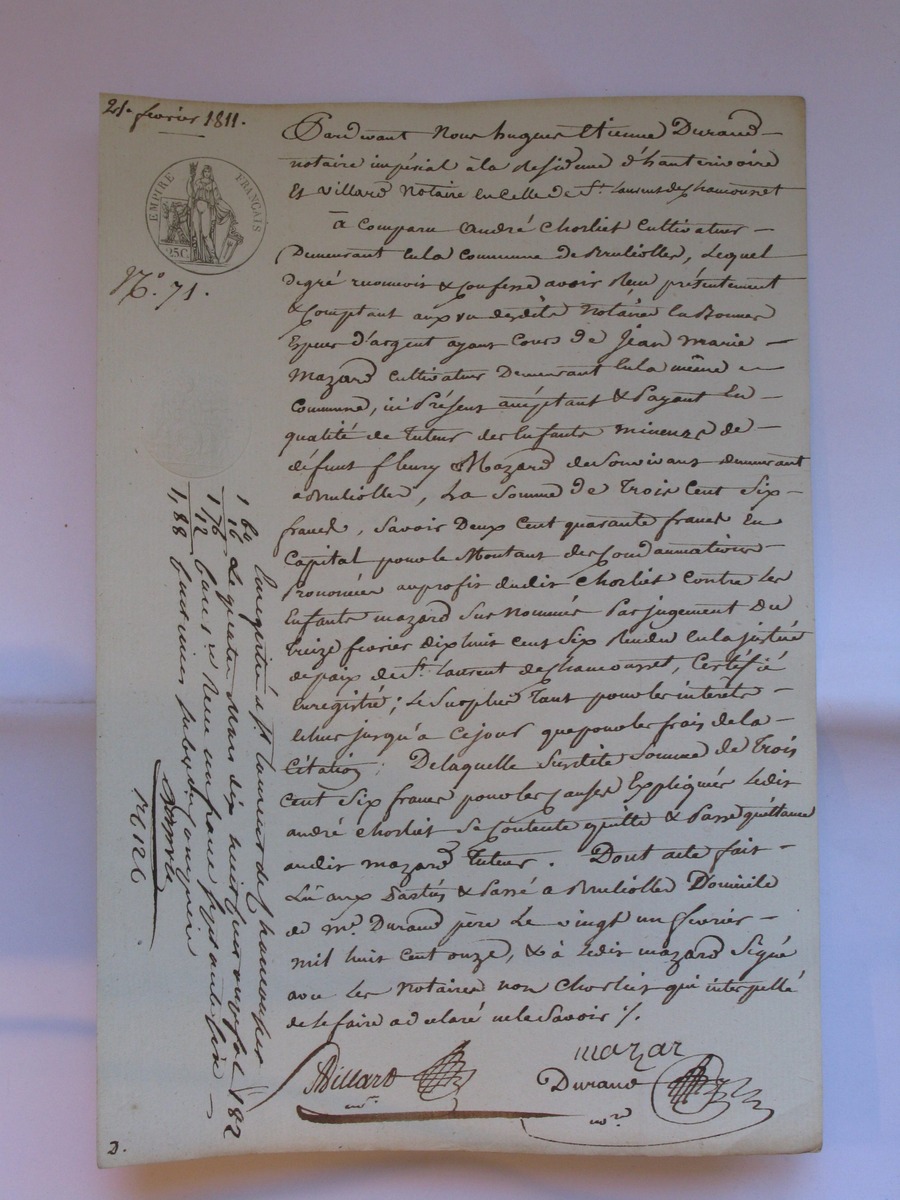 21. fevrier 1811.
EMPIRE FRANÇAIS
25C
N.º 71.
Pardevant Nous hugues Etienne Durand
notaire impérial à la Residence d'hauterivoire
Et Villard Notaire en celle de St. Laurent de Chamousset
à Comparu André Chorliet Cultivateur
Demeurant en la Commune de Brulioller, Lequel
de gré reconnoit & Confesse avoir Reçu présentement
& Comptant aux vu desdits Notaires en Bonnes
Espèces d'argent ayant Cours de Jean Marie
Mazard Cultivateur Demeurant en la même
Commune, ici Présent acceptant & Payant En
qualité de tuteur des Enfants mineurs de
défunt fleury Mazard de Son vivant demeurant
a Brulioller, La Somme de Trois Cent Six
francs, Savoir Deux Cent quarante francs En
Capital pour le Montant des Condamnations
Prononcées au profit dudit Chorliet Contre les
Enfants mazard Sus Nommés Par jugement Du
treize fevrier dix huit cent Six Rendu en la justice
de paix de St. Laurent de Chamousset, Certifié
Enregistré; Le Surplus Tant pour les intérêts
Echus jusqu'à Ce jour que pour les frais de la
Citation; De laquelle Susdite Somme de Trois
Cent Six francs pour les Causes Expliquées Ledit
andré Chorliet Se Contente quitte & Passe quittance
audit mazard Tuteur. Dont acte fait
Lû aux Parties & Passé a Brulioller Domicile
de Mr. Durand père Le vingt un fevrier
mil huit cent onze, & à Ledit mazard Signé
avec Les Notaires non Chorliet qui interpellé
de le faire a déclaré ne le Savoir ./.
mazar
Villard Durand
nore.
Enregistré a St Laurent de Chamousset
Le quatre Mars dix huit cent onze fol 182
Reçu un franc soixante seize
1 60
16
1 76
12
1,88
2.